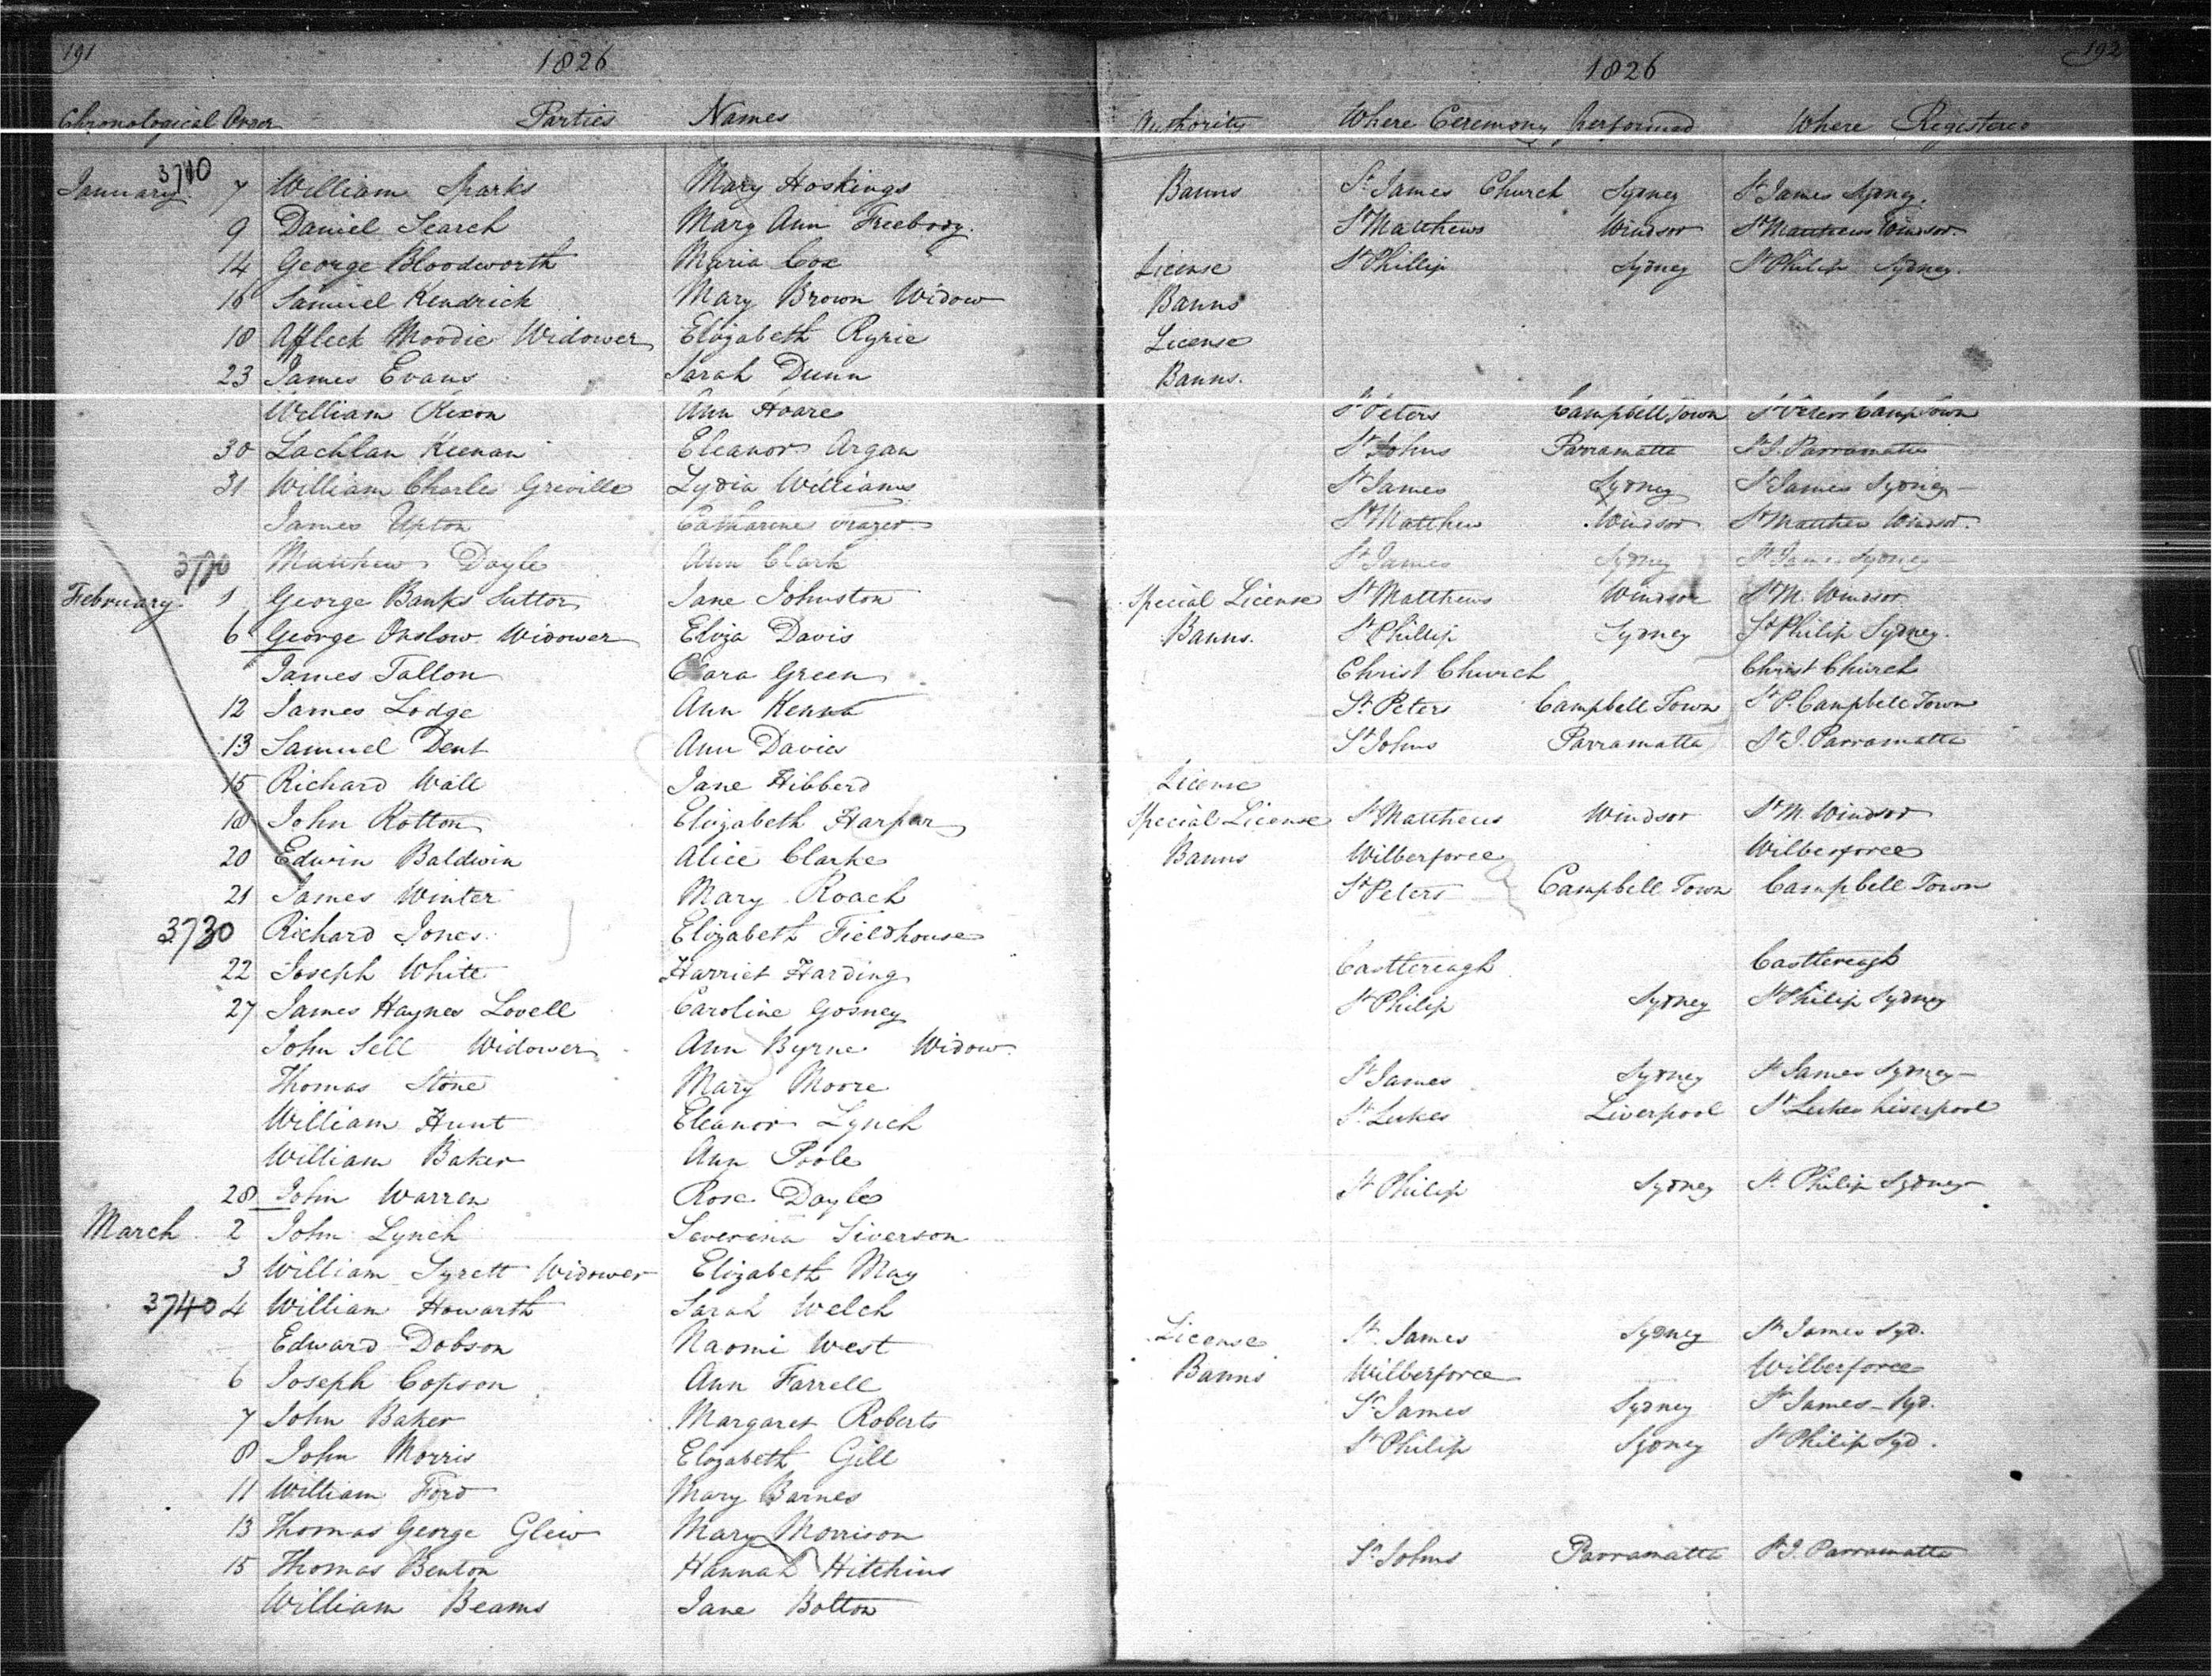 191 1826
Chronological Order Parties Names
January 3710 7 William Sparks Mary Hoskings
9 Daniel Search Mary Ann Freebody.
14 George Bloodworth Maria Cox
16 Samuel Kendrick Mary Brown Widow
18 Affleck Moodie Widower Elizabeth Ryrie
23 James Evans Sarah Dunn
William Rixon Ann Hoare
30 Lachlan Keenan Eleanor Argan
31 William Charles Greville Lydia Williams
James Upton Catharine Frazer
Matthew Doyle Ann Clark
February 1 George Banks Suttor Jane Johnston
6 George Onslow Widower Eliza Davis
James Tallon Clara Green
12 James Lodge Ann Kenna
13 Samuel Dent Ann Davies
15 Richard Wall Jane Hibberd
18 John Rotton Elizabeth Harper
20 Edwin Baldwin Alice Clarke
21 James Winter Mary Roach
3730 Richard Jones. Elizabeth Fieldhouse
22 Joseph White Harriet Harding
27 James Haynes Lovell Caroline Gosney
John Sell Widower Ann Byrne Widow.
Thomas Stone Mary Moore
William Hunt Eleanor Lynch
William Baker Ann Poole
28 John Warren Rose Doyle
March 2 John Lynch Severina Siverson
3 William Syrett Widower Elizabeth May
3740 4 William Howarth Sarah Welch
Edward Dobson Naomi West
6 Joseph Copson Ann Farrell
7 John Baker Margaret Roberts
8 John Morris Elizabeth Gill
11 William Ford Mary Barnes
13 Thomas George Glew Mary Morrison
15 Thomas Benton Hannah Hitchins
William Beams Jane Bolton
1826 192
Authority Where Ceremony Performed Where Registered
Banns St James Church Sydney St James Sydney.
St Matthews Windsor St Matthews Windsor.
License St Phillip Sydney St Philip Sydney.
Banns
License
Banns.
St Peters Campbell Town St Peters Camp Town
St Johns Parramatta St J. Parramatta
St James Sydney St James Sydney -
St Matthew Windsor St Matthew Windsor.
St James Sydney St James Sydney -
Special License St Matthews Windsor St M. Windsor
Banns. St Phillip Sydney St Philip Sydney.
Christ Church Christ Church
St Peters Campbell Town St P. Campbell Town
St Johns Parramatta St J. Parramatta
License
Special License St Matthews Windsor St M. Windsor
Banns Wilberforce Wilberforce
St Peters Campbell Town Campbell Town
Castlereagh Castlereagh
St Philip Sydney St Philip Sydney
St James Sydney St James Sydney -
St Lukes Liverpool St Lukes Liverpool
St Philip Sydney St Philip Sydney
License St James Sydney St James Syd.
Banns Wilberforce Wilberforce
St James Sydney St James - Syd.
St Philip Sydney St Philip Syd.
St Johns Parramatta St J. Parramatta